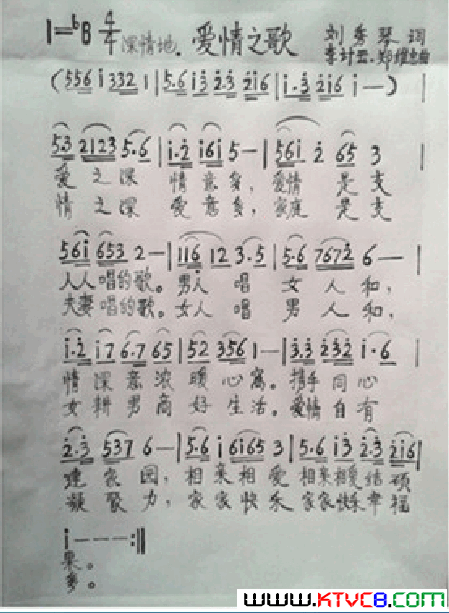 1=♭B 4/4 深情地. 爱情之歌 刘秀琴词
李计亚.郑维忠曲
(556i 3321 | 5.6i3 2.3 2i6 | i.3 2i6 i—) |
53 2123 5.6 | i.2 i6i 5— | 56i 2 65 3 |
爱之深 情意多, 爱情 是支
情之深 爱意多, 家庭 是支
56i 653 2— | 116 12 3.5 | 5.6 7672 6— |
人人唱的歌。男人 唱 女人和,
夫妻唱的歌。女人 唱 男人和,
i.2 i7 6.7 65 | 52 356 1— | 3.3 232 i.6 |
情深意浓暖心窝。携手同心
女耕男商好生活。爱情自有
2.3 537 6— | 5.6 i 6i65 3 | 5.6 i3 2.3 2i6 |
建家园,相亲相爱相亲相爱结硕
凝聚力,家家快乐家家快乐幸福
i———:||
果。
多。
www.KTVC8.com